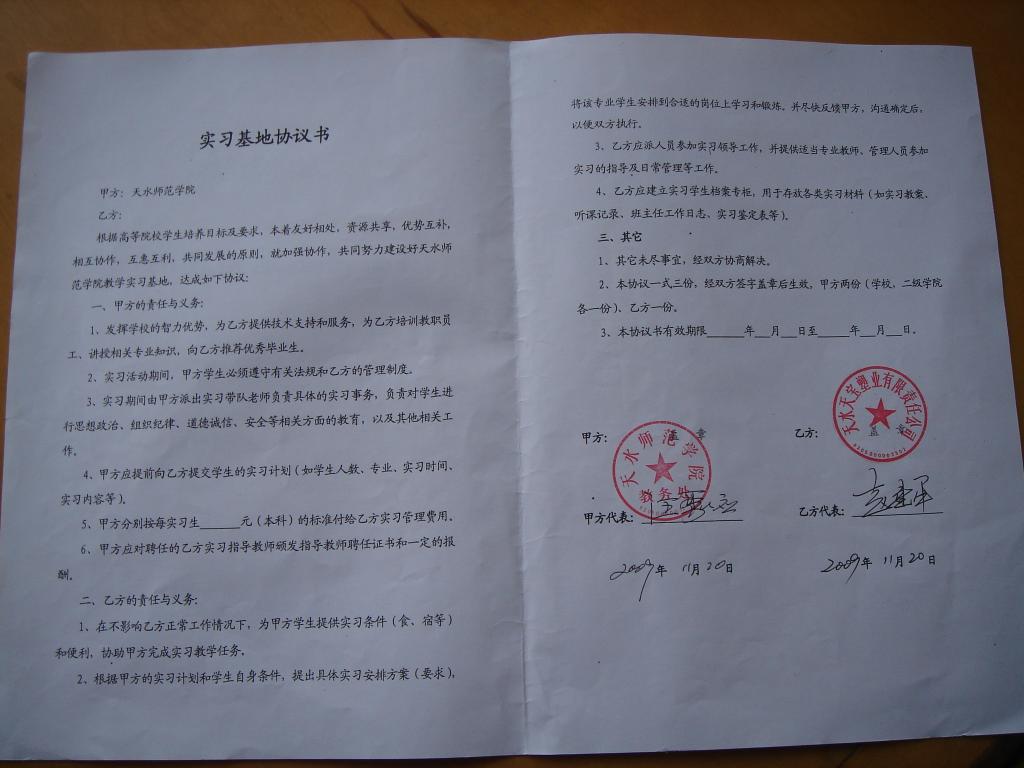 实习基地协议书
甲方：天水师范学院
乙方：
根据高等院校学生培养目标及要求，本着友好相处，资源共享，优势互补，
相互协作，互惠互利，共同发展的原则，就加强协作，共同努力建设好天水师
范学院教学实习基地，达成如下协议：
一、甲方的责任与义务：
1、发挥学校的智力优势，为乙方提供技术支持和服务，为乙方培训教职员
工、讲授相关专业知识，向乙方推荐优秀毕业生。
2、实习活动期间，甲方学生必须遵守有关法规和乙方的管理制度。
3、实习期间由甲方派出实习带队老师负责具体的实习事务，负责对学生进
行思想政治、组织纪律、道德诚信、安全等相关方面的教育，以及其他相关工
作。
4、甲方应提前向乙方提交学生的实习计划（如学生人数、专业、实习时间、
实习内容等）。
5、甲方分别按每实习生______元（本科）的标准付给乙方实习管理费用。
6、甲方应对聘任的乙方实习指导教师颁发指导教师聘任证书和一定的报
酬。
二、乙方的责任与义务：
1、在不影响乙方正常工作情况下，为甲方学生提供实习条件（食、宿等）
和便利，协助甲方完成实习教学任务。
2、根据甲方的实习计划和学生自身条件，提出具体实习安排方案（要求），
将该专业学生安排到合适的岗位上学习和锻炼。并尽快反馈甲方，沟通确定后，
以便双方执行。
3、乙方应派人员参加实习领导工作，并提供适当专业教师、管理人员参加
实习的指导及日常管理等工作。
4、乙方应建立实习学生档案专柜，用于存放各类实习材料（如实习教案、
听课记录、班主任工作日志、实习鉴定表等）。
三、其它
1、其它未尽事宜，经双方协商解决。
2、本协议一式三份，经双方签字盖章后生效，甲方两份（学校，二级学院
各一份）、乙方一份。
3、本协议书有效期限______年___月___日至______年___月___日。
甲方： 盖 章
天水师范学院
教务处
乙方： 盖 章
天水天宝塑业有限责任公司
甲方代表：
乙方代表：
2009年 11月20日
2009年 11月20日